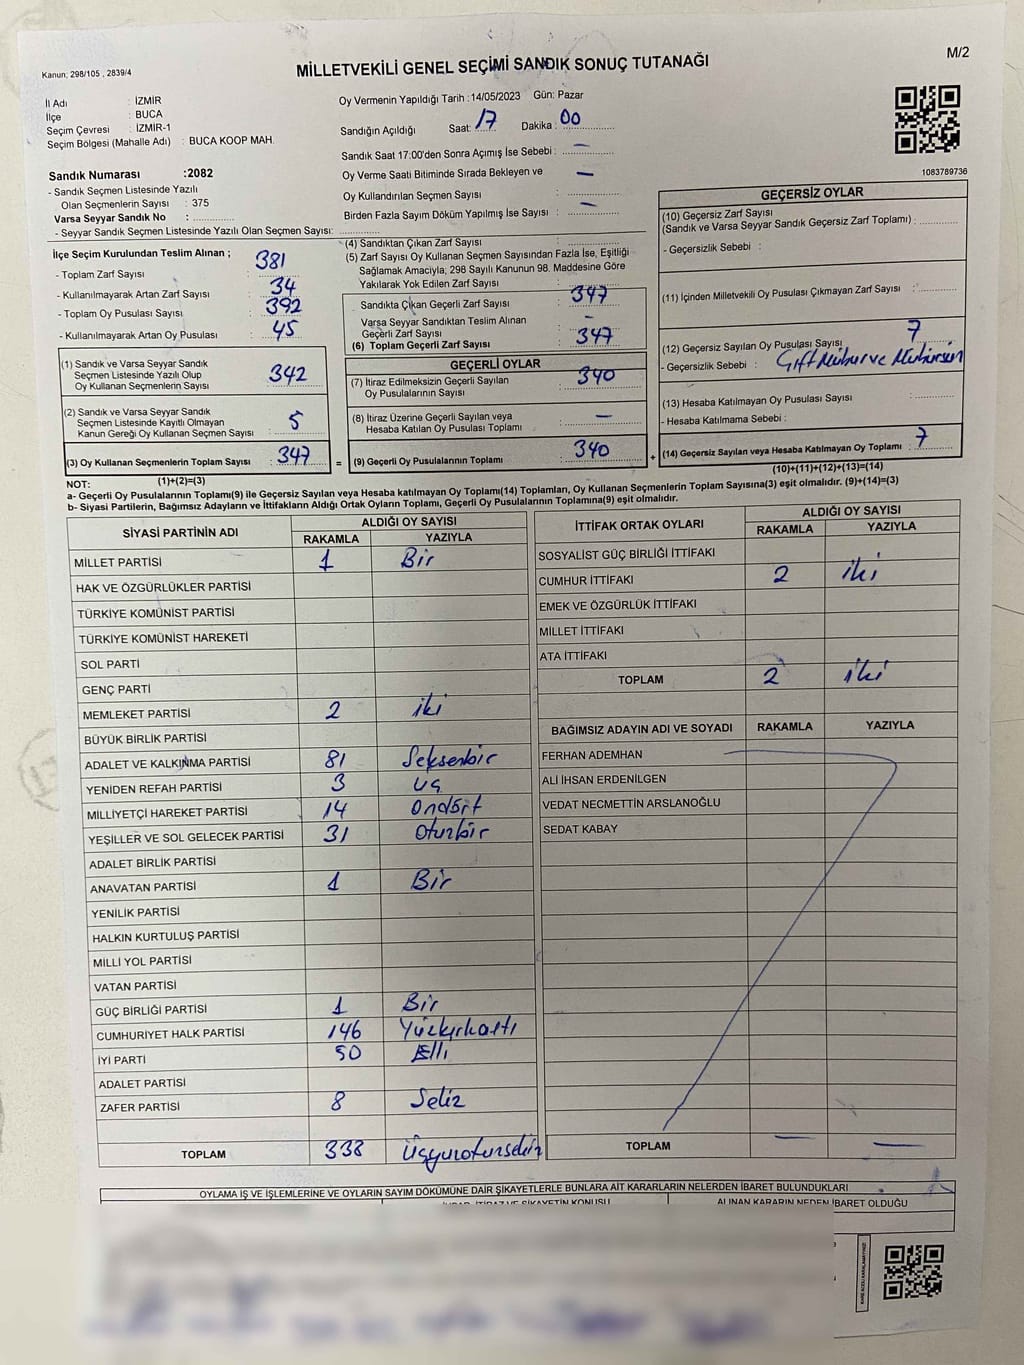 Kanun; 298/105 , 2839/4
MİLLETVEKİLİ GENEL SEÇİMİ SANDIK SONUÇ TUTANAĞI
M/2
İl Adı : İZMİR
İlçe : BUCA
Seçim Çevresi : İZMİR-1
Seçim Bölgesi (Mahalle Adı) : BUCA KOOP MAH.
Oy Vermenin Yapıldığı Tarih : 14/05/2023 Gün: Pazar
Sandığın Açıldığı Saat: 17 Dakika : 00
Sandık Saat 17:00'den Sonra Açımış İse Sebebi : —
Oy Verme Saati Bitiminde Sırada Bekleyen ve —
Oy Kullandırılan Seçmen Sayısı :
Birden Fazla Sayım Döküm Yapılmış İse Sayısı : —
1083789736
Sandık Numarası :2082
- Sandık Seçmen Listesinde Yazılı
Olan Seçmenlerin Sayısı : 375
Varsa Seyyar Sandık No :
- Seyyar Sandık Seçmen Listesinde Yazılı Olan Seçmen Sayısı:
İlçe Seçim Kurulundan Teslim Alınan ;
- Toplam Zarf Sayısı : 381
- Kullanılmayarak Artan Zarf Sayısı : 34
- Toplam Oy Pusulası Sayısı : 392
- Kullanılmayarak Artan Oy Pusulası : 45
(1) Sandık ve Varsa Seyyar Sandık
Seçmen Listesinde Yazılı Olup
Oy Kullanan Seçmenlerin Sayısı : 342
(2) Sandık ve Varsa Seyyar Sandık
Seçmen Listesinde Kayıtlı Olmayan
Kanun Gereği Oy Kullanan Seçmen Sayısı : 5
(3) Oy Kullanan Seçmenlerin Toplam Sayısı : 347
(1)+(2)=(3)
(4) Sandıktan Çıkan Zarf Sayısı :
(5) Zarf Sayısı Oy Kullanan Seçmen Sayısından Fazla İse, Eşitliği
Sağlamak Amacıyla; 298 Sayılı Kanunun 98. Maddesine Göre
Yakılarak Yok Edilen Zarf Sayısı :
Sandıkta Çıkan Geçerli Zarf Sayısı : 347
Varsa Seyyar Sandıktan Teslim Alınan –
Geçerli Zarf Sayısı
(6) Toplam Geçerli Zarf Sayısı : 347
GEÇERLİ OYLAR
(7) İtiraz Edilmeksizin Geçerli Sayılan : 340
Oy Pusulalarının Sayısı
(8) İtiraz Üzerine Geçerli Sayılan veya —
Hesaba Katılan Oy Pusulası Toplamı :
= (9) Geçerli Oy Pusulalarının Toplamı : 340
GEÇERSİZ OYLAR
(10) Geçersiz Zarf Sayısı
(Sandık ve Varsa Seyyar Sandık Geçersiz Zarf Toplamı) :
- Geçersizlik Sebebi :
(11) İçinden Milletvekili Oy Pusulası Çıkmayan Zarf Sayısı :
(12) Geçersiz Sayılan Oy Pusulası Sayısı : 7
- Geçersizlik Sebebi : Çift Mühür ve Mühürsün
(13) Hesaba Katılmayan Oy Pusulası Sayısı :
- Hesaba Katılmama Sebebi :
+ (14) Geçersiz Sayılan veya Hesaba Katılmayan Oy Toplamı : 7
(10)+(11)+(12)+(13)=(14)
NOT:
a- Geçerli Oy Pusulalarının Toplamı(9) ile Geçersiz Sayılan veya Hesaba katılmayan Oy Toplamı(14) Toplamları, Oy Kullanan Seçmenlerin Toplam Sayısına(3) eşit olmalıdır. (9)+(14)=(3)
b- Siyasi Partilerin, Bağımsız Adayların ve İttifakların Aldığı Ortak Oyların Toplamı, Geçerli Oy Pusulalarının Toplamına(9) eşit olmalıdır.
SİYASİ PARTİNİN ADI ALDIĞI OY SAYISI
RAKAMLA YAZIYLA
MİLLET PARTİSİ 1 Bir
HAK VE ÖZGÜRLÜKLER PARTİSİ
TÜRKİYE KOMÜNİST PARTİSİ
TÜRKİYE KOMÜNİST HAREKETİ
SOL PARTİ
GENÇ PARTİ
MEMLEKET PARTİSİ 2 iki
BÜYÜK BİRLİK PARTİSİ
ADALET VE KALKINMA PARTİSİ 81 Seksenbir
YENİDEN REFAH PARTİSİ 3 Uç
MİLLİYETÇİ HAREKET PARTİSİ 14 Ondört
YEŞİLLER VE SOL GELECEK PARTİSİ 31 Oturbir
ADALET BİRLİK PARTİSİ
ANAVATAN PARTİSİ 1 Bir
YENİLİK PARTİSİ
HALKIN KURTULUŞ PARTİSİ
MİLLİ YOL PARTİSİ
VATAN PARTİSİ
GÜÇ BİRLİĞİ PARTİSİ 1 Bir
CUMHURİYET HALK PARTİSİ 146 Yüzkırkaltı
İYİ PARTİ 50 Elli
ADALET PARTİSİ
ZAFER PARTİSİ 8 Sekiz
TOPLAM 338
İTTİFAK ORTAK OYLARI ALDIĞI OY SAYISI
RAKAMLA YAZIYLA
SOSYALİST GÜÇ BİRLİĞİ İTTİFAKI
CUMHUR İTTİFAKI 2 iki
EMEK VE ÖZGÜRLÜK İTTİFAKI
MİLLET İTTİFAKI
ATA İTTİFAKI
TOPLAM 2 iki
BAĞIMSIZ ADAYIN ADI VE SOYADI RAKAMLA YAZIYLA
FERHAN ADEMHAN
ALİ İHSAN ERDENİLGEN
VEDAT NECMETTİN ARSLANOĞLU
SEDAT KABAY
TOPLAM — —
OYLAMA İŞ VE İŞLEMLERİNE VE OYLARIN SAYIM DÖKÜMÜNE DAİR ŞİKAYETLERLE BUNLARA AİT KARARLARIN NELERDEN İBARET BULUNDUKLARI
İHBAR, İTİRAZ VE ŞİKAYETİN KONUSU ALINAN KARARIN NEDEN İBARET OLDUĞU